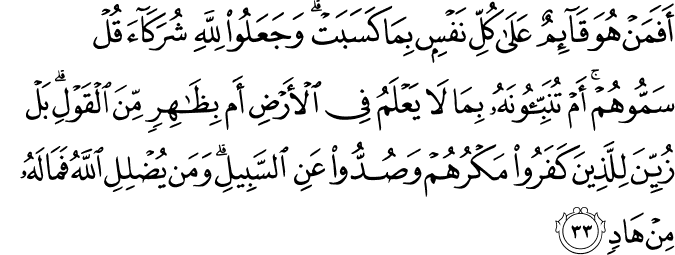 أَفَمَنۡ هُوَ قَآئِمٌ عَلَىٰ كُلِّ نَفۡسِۭ بِمَا كَسَبَتۡۗ وَجَعَلُواْ لِلَّهِ شُرَكَآءَ قُلۡ
سَمُّوهُمۡۚ أَمۡ تُنَبِّـُٔونَهُۥ بِمَا لَا يَعۡلَمُ فِي ٱلۡأَرۡضِ أَم بِظَٰهِرٖ مِّنَ ٱلۡقَوۡلِۗ بَلۡ
زُيِّنَ لِلَّذِينَ كَفَرُواْ مَكۡرُهُمۡ وَصُدُّواْ عَنِ ٱلسَّبِيلِۗ وَمَن يُضۡلِلِ ٱللَّهُ فَمَا لَهُۥ
مِنۡ هَادٖ ٣٣